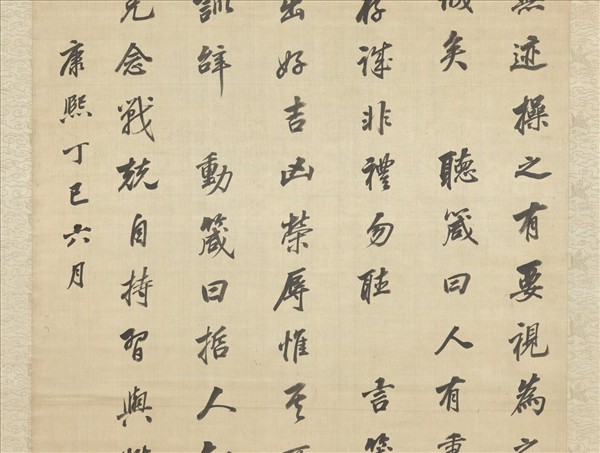 無迹操之有要視為之
誠矣 聽箴曰人有秉
存誠非禮勿聽 言箴
出好吉凶榮辱惟其所
訓辭 動箴曰哲人知
克念戰兢自持習與性
康熙丁巳六月